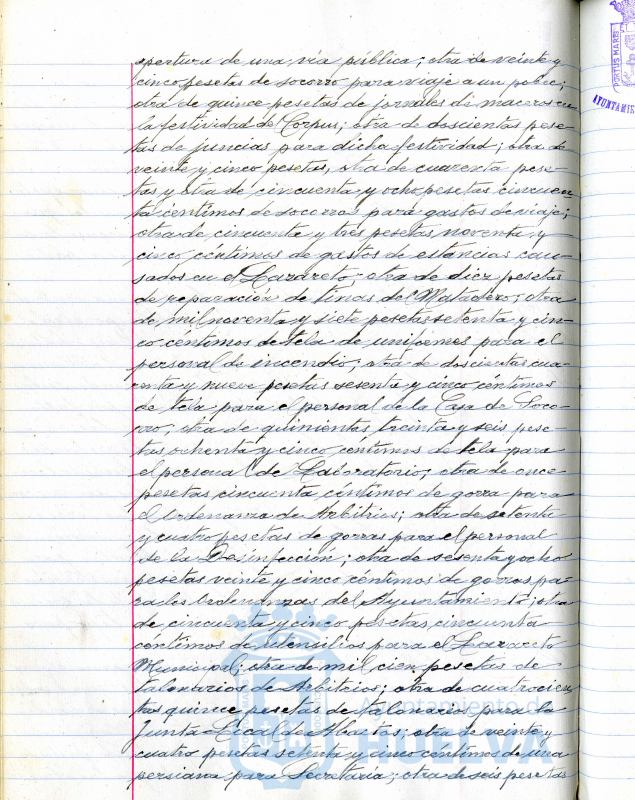 apertura de una vía pública; otra de veinte y
cinco pesetas de socorro para viaje a un pobre;
otra de quince pesetas de jornales de maceros en
la festividad del Corpus; otra de doscientas pese-
tas de juncias para dicha festividad; otra de
veinte y cinco pesetas, otra de cuarenta pese-
tas y otra de cincuenta y ocho pesetas cincuen-
ta céntimos de socorros para gastos de viaje;
otra de cincuenta y tres pesetas noventa y
cinco céntimos de gastos de estancias cau-
sados en el Lazareto; otra de diez pesetas
de reparación de tinas del Matadero; otra
de mil noventa y siete pesetas setenta y cin-
co céntimos de tela de uniformes para el
personal de incendio; otra de doscientas cua-
renta y nueve pesetas sesenta y cinco céntimos
de tela para el personal de la Casa de Soco-
rro; otra de quinientas treinta y seis pese-
tas ochenta y cinco céntimos de tela para
el personal de Laboratorio; otra de once
pesetas cincuenta céntimos de gorra para
el Ordenanza de Arbitrios; otra de setenta
y cuatro pesetas de gorras para el personal
de la Desinfección; otra de sesenta y ocho
pesetas veinte y cinco céntimos de gorros pa-
ra los Ordenanzas del Ayuntamiento; otra
de cincuenta y cinco pesetas cincuenta
céntimos de utensilios para el Lazareto
Municipal; otra de mil cien pesetas de
talonarios de Arbitrios; otra de cuatrocien-
tas quince pesetas de talonarios para la
Junta Local de Abastos; otra de veinte y
cuatro pesetas setenta y cinco céntimos de una
persiana para Secretaría; otra de seis pesetas
PORTUS MARIS
AYUNTAMIE
Ayuntamiento de
HUELVA